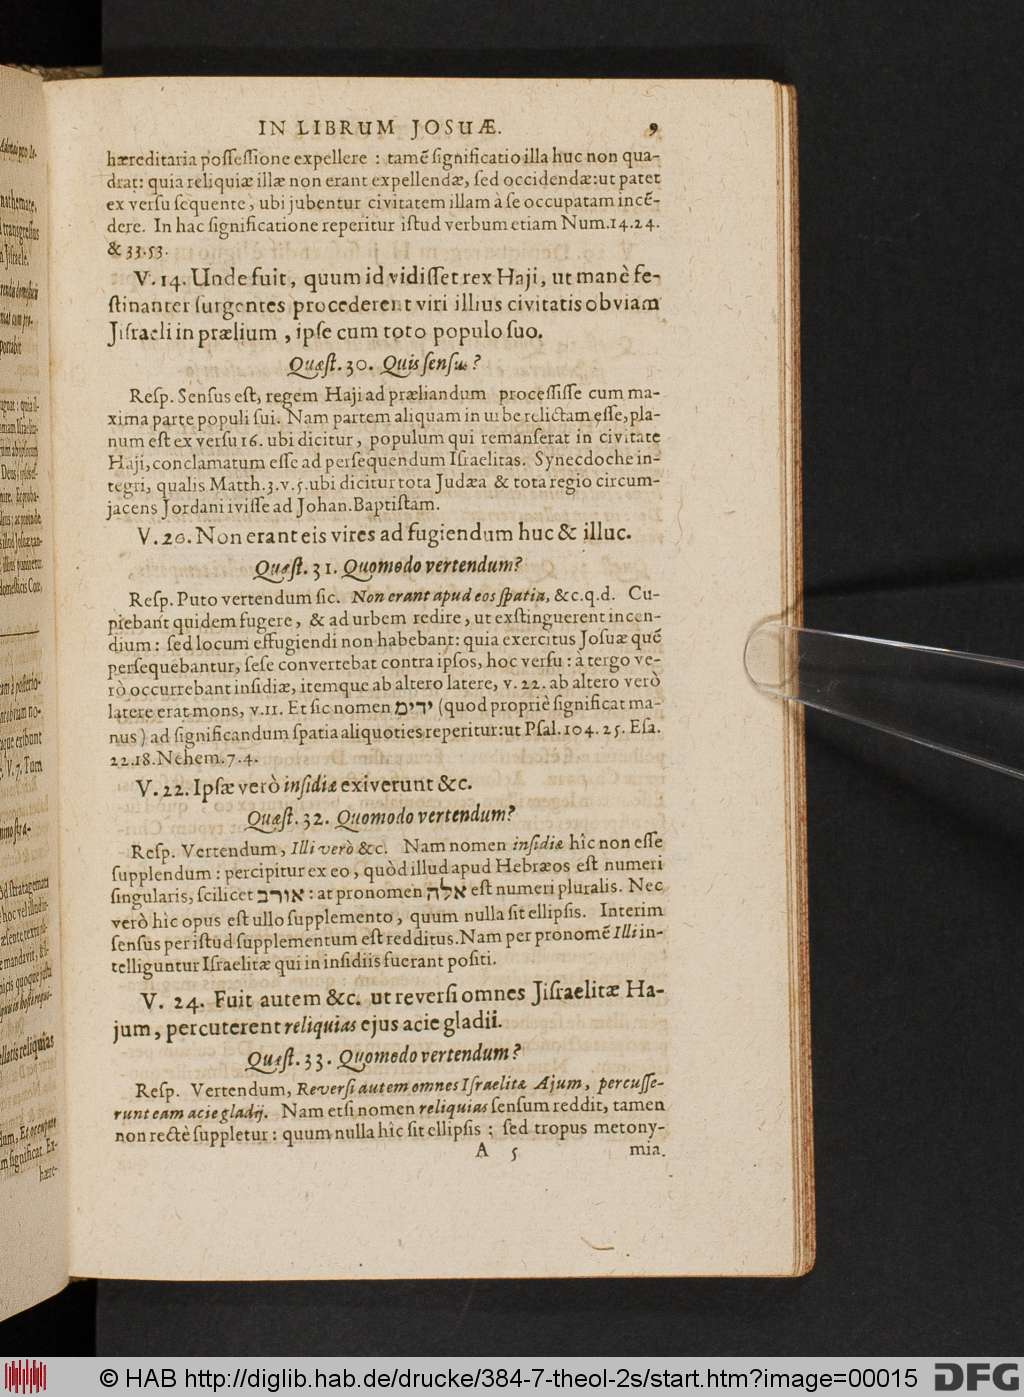 IN LIBRUM JOSUÆ. 9
hæreditaria possessione expellere : tamē significatio illa huc non qua-
drat: quia reliquiæ illæ non erant expellendæ, sed occidendæ:ut patet
ex versu sequente, ubi jubentur civitatem illam à se occupatam incē-
dere. In hac significatione reperitur istud verbum etiam Num.14.24.
& 33.53.
V. 14. Unde fuit, quum id vidisset rex Haji, ut manè fe-
stinanter surgentes procederent viri illius civitatis obviam
Jisraeli in prælium, ipse cum toto populo suo.
Quæst. 30. Quis sensus?
Resp. Sensus est, regem Haji ad præliandum processisse cum ma-
xima parte populi sui. Nam partem aliquam in urbe relictam esse, pla-
num est ex versu 16. ubi dicitur, populum qui remanserat in civitate
Haji, conclamatum esse ad persequendum Israelitas. Synecdoche in-
tegri, qualis Matth.3.v.5.ubi dicitur tota Judæa & tota regio circum-
jacens Jordani ivisse ad Johan.Baptistam.
V. 20. Non erant eis vires ad fugiendum huc & illuc.
Quæst. 31. Quomodo vertendum?
Resp. Puto vertendum sic. Non erant apud eos spatia, &c.q.d. Cu-
piebant quidem fugere, & ad urbem redire, ut exstinguerent incen-
dium : sed locum effugiendi non habebant: quia exercitus Josuæ quē
persequebantur, sese convertebat contra ipsos, hoc versu : a tergo ve-
rò occurrebant insidiæ, itemque ab altero latere, v. 22. ab altero verò
latere erat mons, v.11. Et sic nomen ידים (quod propriè significat ma-
nus) ad significandum spatia aliquoties reperitur:ut Psal.104. 25. Esa.
22.18. Nehem.7.4.
V. 22. Ipsæ verò insidiæ exiverunt &c.
Quæst. 32. Quomodo vertendum?
Resp. Vertendum, Illi verò &c. Nam nomen insidiæ hîc non esse
supplendum : percipitur ex eo, quòd illud apud Hebræos est numeri
singularis, scilicet אורב : at pronomen אלה est numeri pluralis. Nec
verò hìc opus est ullo supplemento, quum nulla sit ellipsis. Interim
sensus per istud supplementum est redditus. Nam per pronomē Illi in-
telliguntur Israelitæ qui in insidiis fuerant positi.
V. 24. Fuit autem &c. ut reversi omnes Jisraelitæ Ha-
jum, percuterent reliquias ejus acie gladii.
Quæst. 33. Quomodo vertendum?
Resp. Vertendum, Reversi autem omnes Israelitæ Ajum, percusse-
runt eam acie gladij. Nam etsi nomen reliquias sensum reddit, tamen
non rectè suppletur : quum nulla hîc sit ellipsis : sed tropus metony-
A 5 mia.
© HAB http://diglib.hab.de/drucke/384-7-theol-2s/start.htm?image=00015
DFG